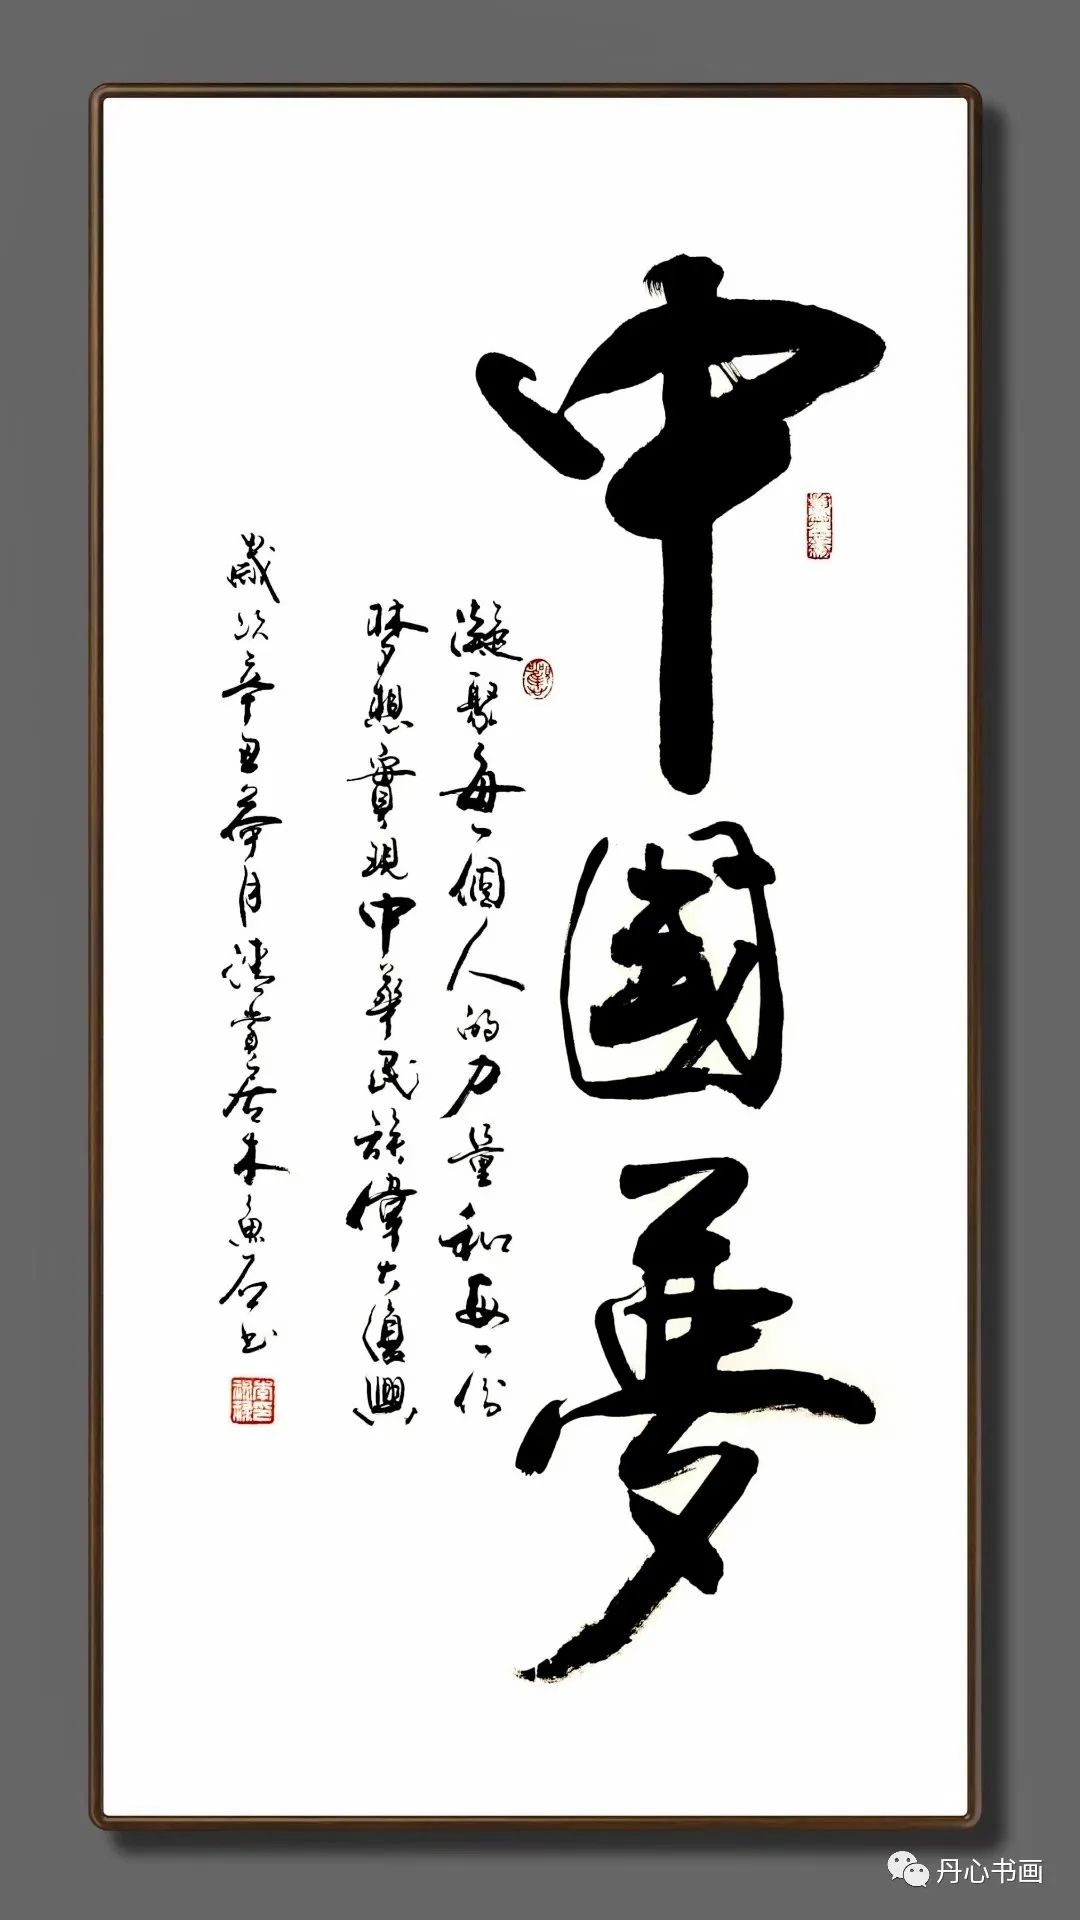 中國夢
凝聚每一個人的力量和每一份
梦想實現中華民族偉大復興
歲次辛丑荷月清賞居木魚石书
丹心书画